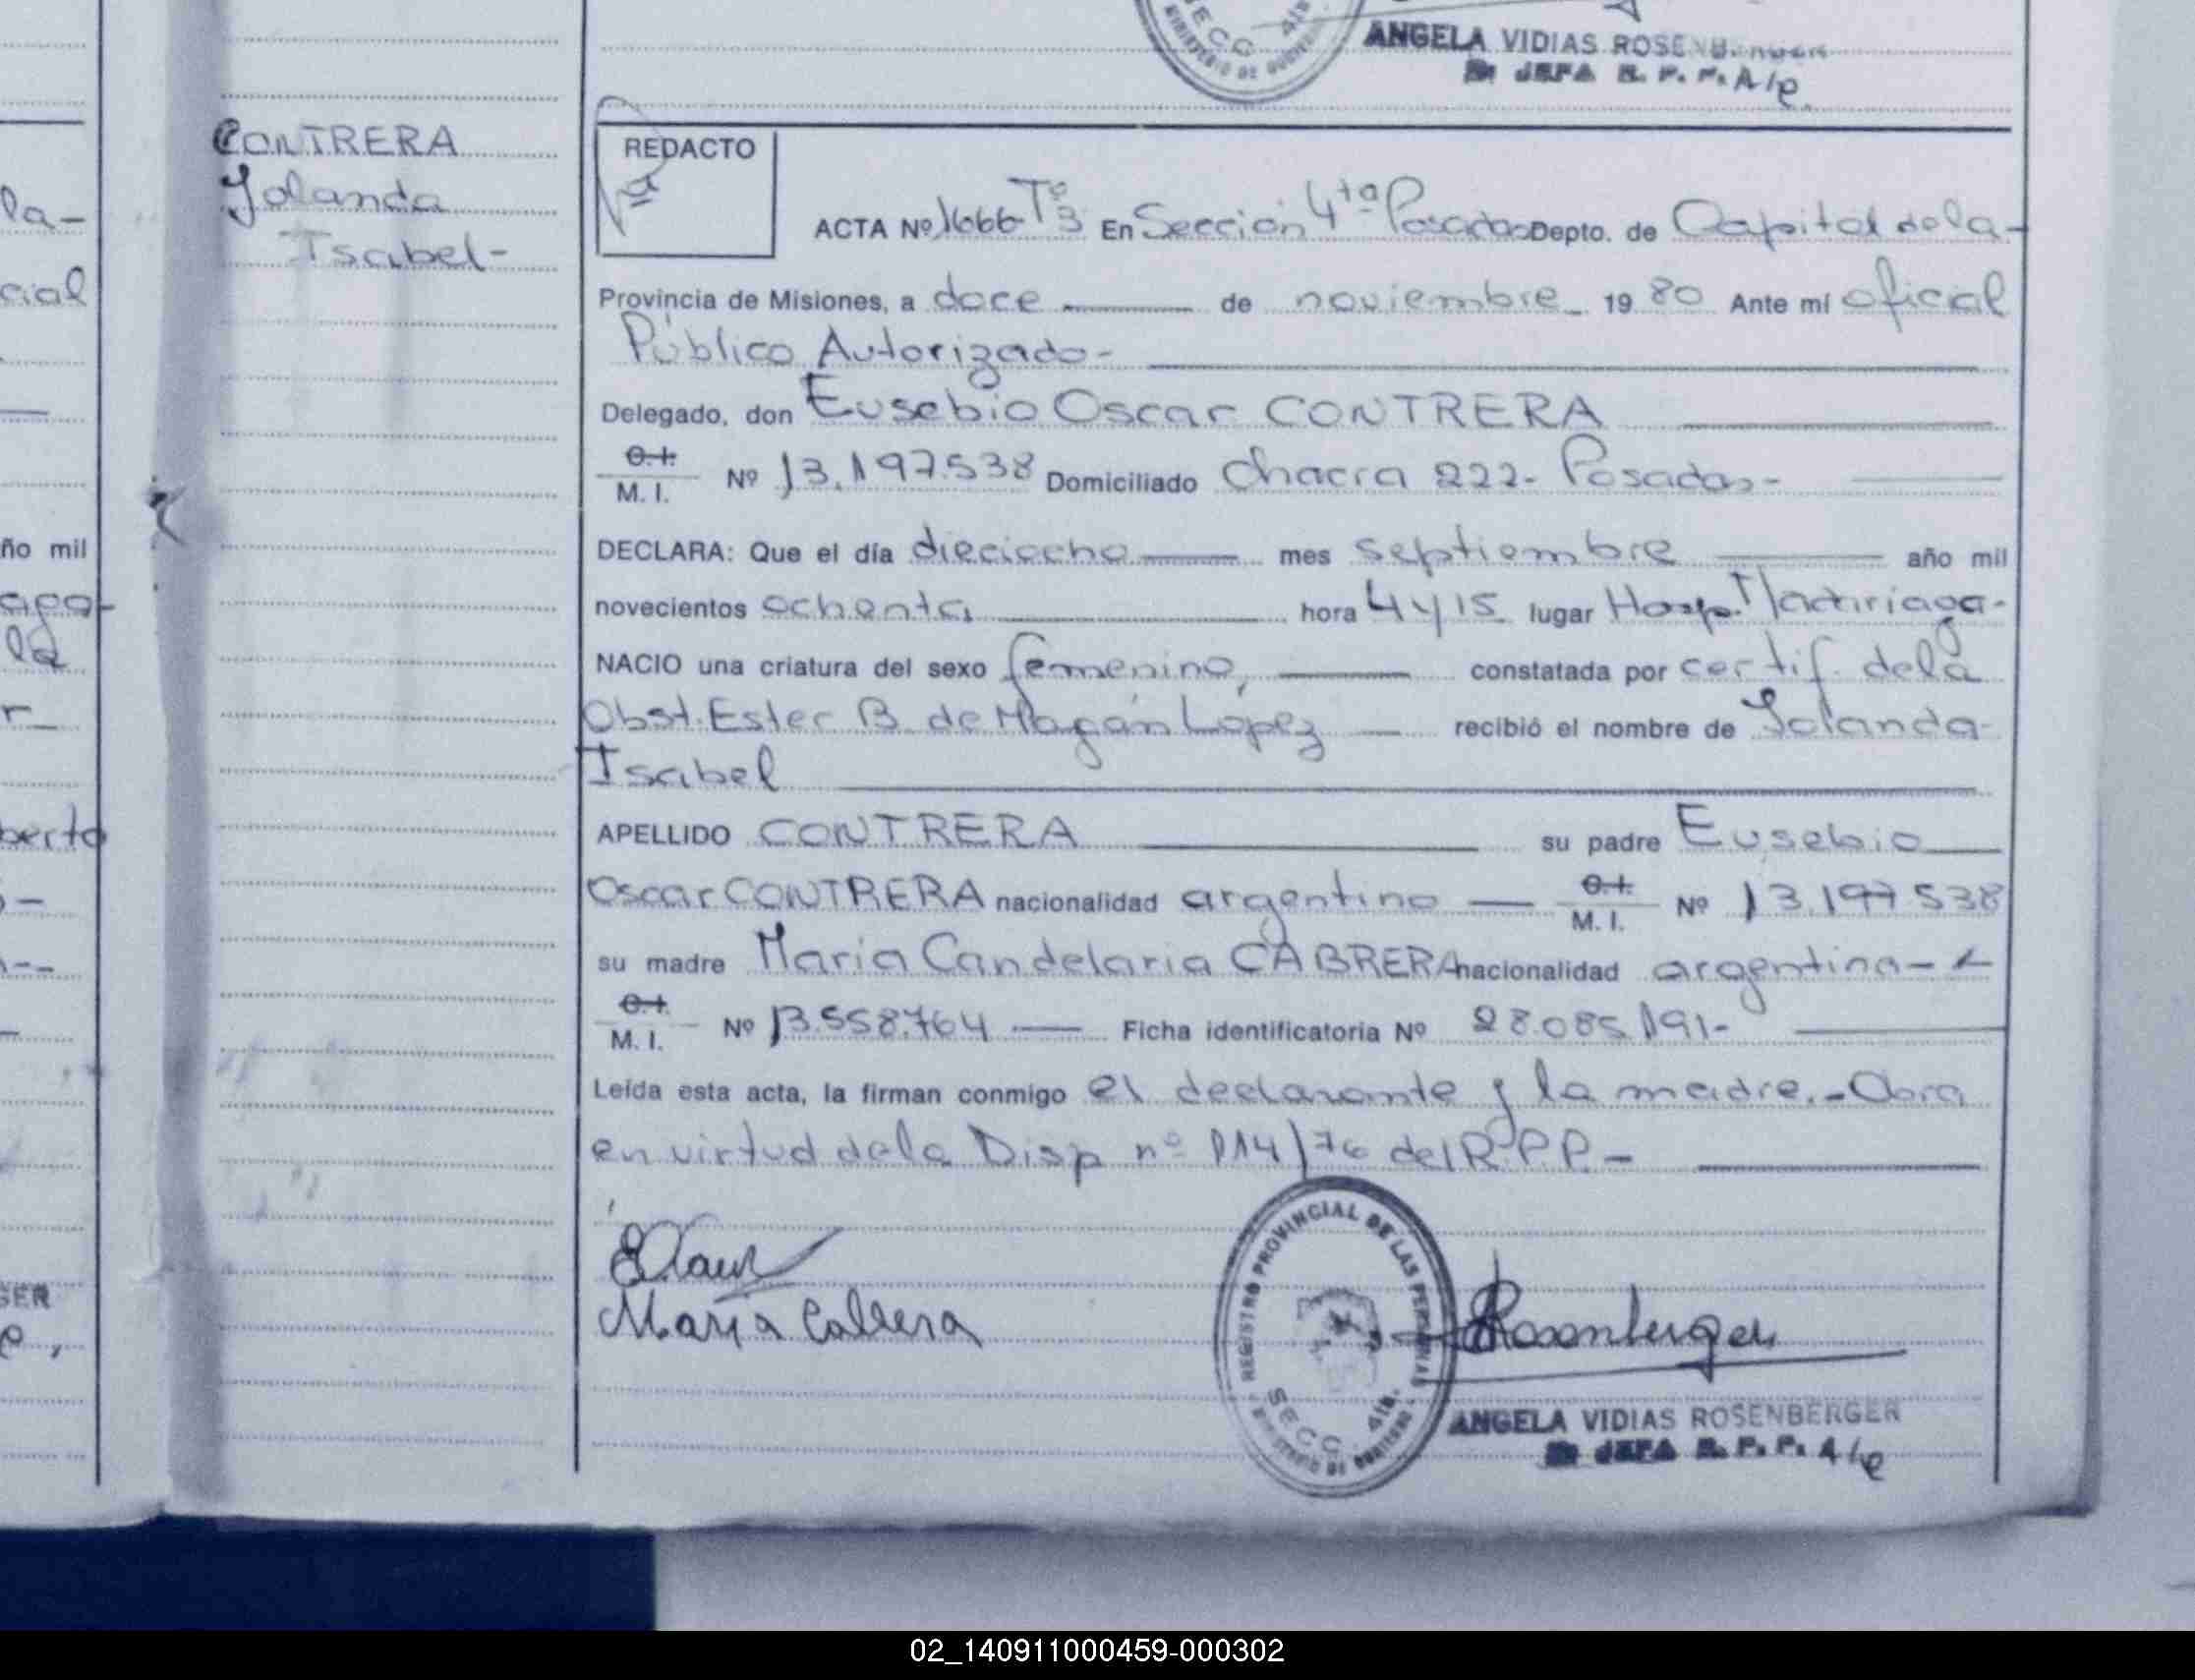 ANGELA VIDIAS ROSENBERGER
JEFA R. P. P. A/c.
SECC 4ta.
MINISTERIO DE GOBIERNO
CONTRERA
Yolanda
Isabel-
REDACTO
ACTA Nº 1666 Tº 3 En Sección 4ta Posadas Depto. de Capital de la-
Provincia de Misiones, a doce de noviembre 19 80 Ante mí oficial
Público Autorizado-
Delegado, don Eusebio Oscar CONTRERA
C.I. M. I. Nº 13.197.538 Domiciliado Chacra 222- Posadas-
DECLARA: Que el día dieciocho mes septiembre año mil
novecientos ochenta hora 4 y 15 lugar Hosp. Madariaga-
NACIO una criatura del sexo femenino, constatada por certif. de la
Obst. Ester B. de Magán López recibió el nombre de Yolanda-
Isabel
APELLIDO CONTRERA su padre Eusebio
Oscar CONTRERA nacionalidad argentino C.I. M. I. Nº 13.197.538
su madre María Candelaria CABRERA nacionalidad argentina-
C.I. M. I. Nº 13.558.764 Ficha identificatoria Nº 28.085.191-
Leída esta acta, la firman conmigo el declarante y la madre.- Obra
en virtud de la Disp nº 114/76 del R.P.P.-
María Cabrera
REGISTRO PROVINCIAL DE LAS PERSONAS
SECC 4ta.
MINISTERIO DE GOBIERNO
Rosenberger
ANGELA VIDIAS ROSENBERGER
JEFA R. P. P. A/c
la-
cial
ño mil
la
berto
GER
02_140911000459-000302